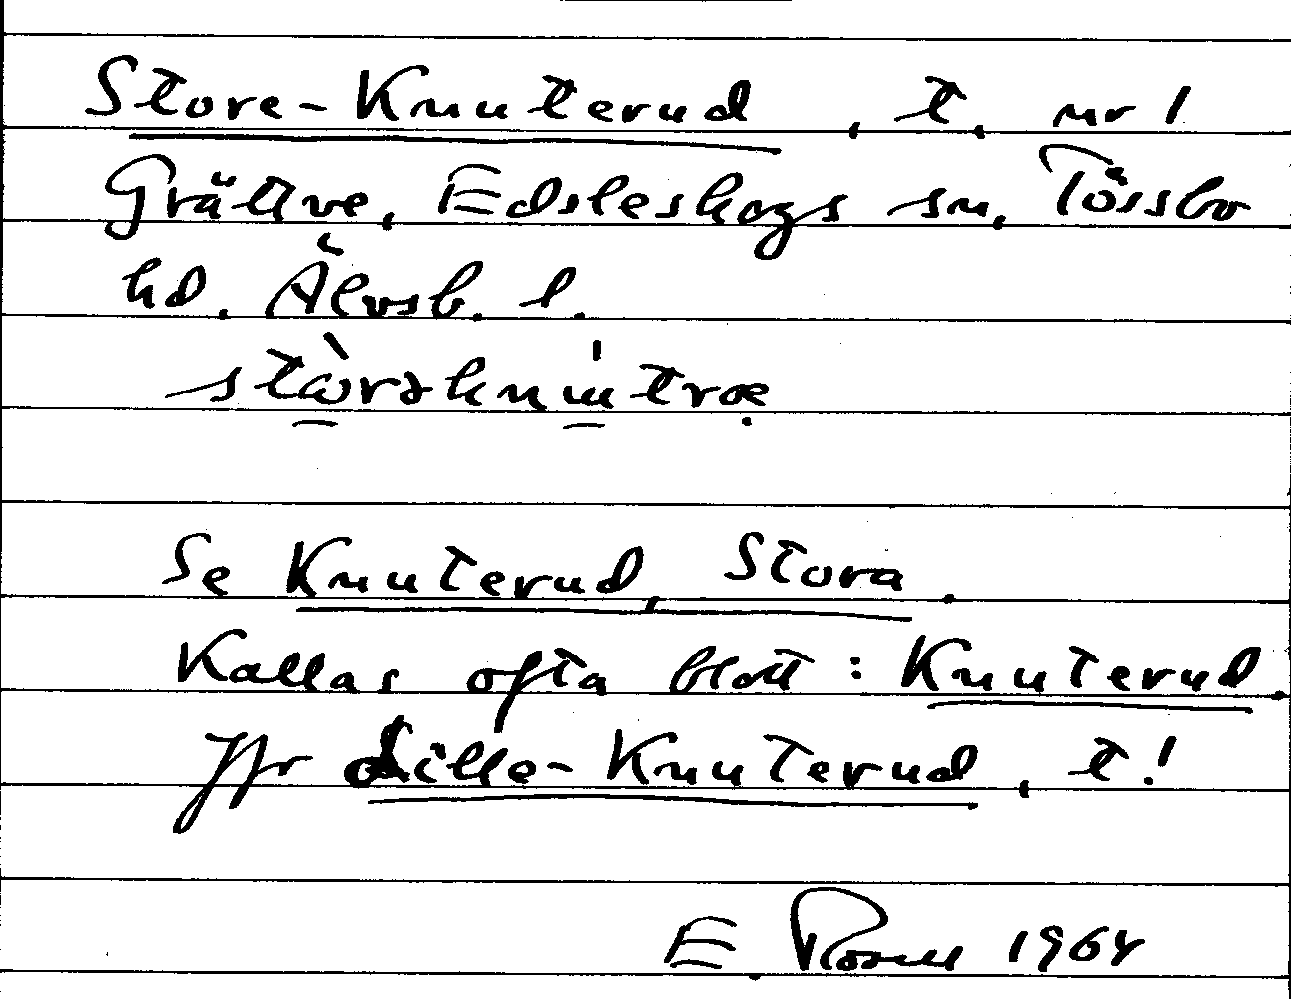 Store-Knuterud, t. nr 1
Grättve, Edsleskogs sn, Tössbo
hd. Älvsb. l.
Se Knuterud, Stora.
Kallas ofta blott: Knuterud.
Jfr Lille-Knuterud, t!
E. Rosell 1964